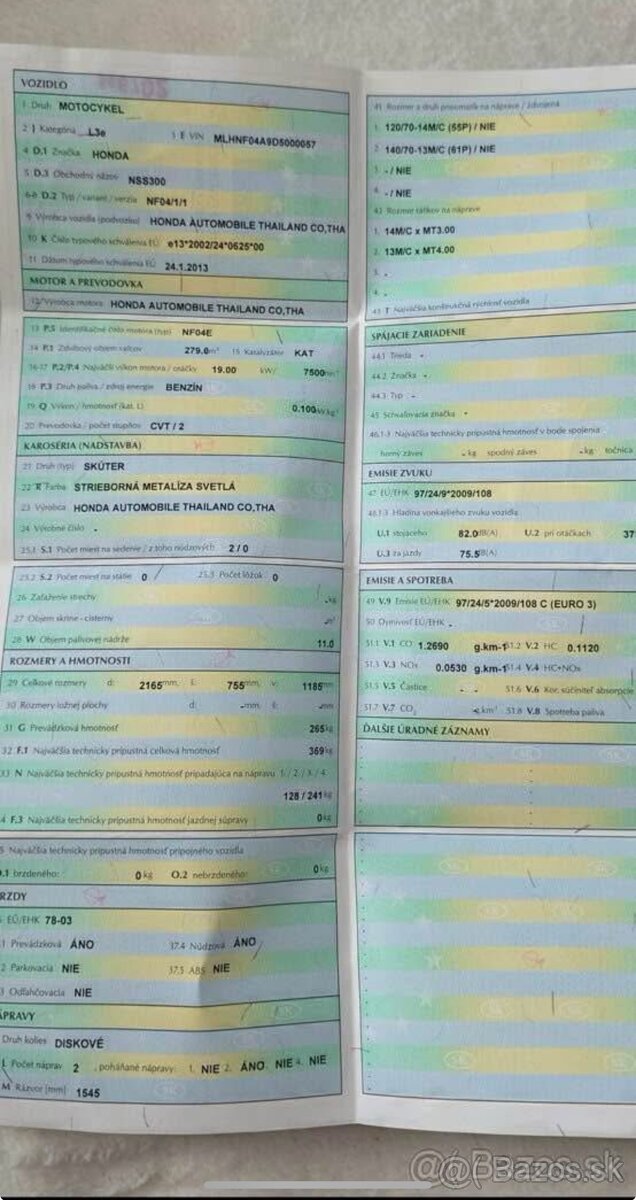 VOZIDLO
1 Druh MOTOCYKEL
2 J Kategória L3e 3 E VIN MLHNF04A9D5000057
4 D.1 Značka HONDA
5 D.3 Obchodný názov NSS300
6-8 D.2 Typ / variant / verzia NF04/1/1
9 Výrobca vozidla (podvozku) HONDA AUTOMOBILE THAILAND CO,THA
10 K Číslo typového schválenia EÚ e13*2002/24*0625*00
11 Dátum typového schválenia EÚ 24.1.2013
MOTOR A PREVODOVKA
12 Výrobca motora HONDA AUTOMOBILE THAILAND CO,THA
13 P.5 Identifikačné číslo motora (typ) NF04E
14 P.1 Zdvihový objem valcov 279.0 15 Katalyzátor KAT
16-17 P.2/P.4 Najväčší výkon motora / otáčky 19.00 kW/ 7500
18 P.3 Druh paliva / zdroj energie BENZÍN
19 Q Výkon / hmotnosť (kat. L) 0.100
20 Prevodovka / počet stupňov CVT / 2
KAROSÉRIA (NADSTAVBA)
21 Druh (typ) SKÚTER
22 R Farba STRIEBORNÁ METALÍZA SVETLÁ
23 Výrobca HONDA AUTOMOBILE THAILAND CO,THA
24 Výrobné číslo -
25.1 S.1 Počet miest na sedenie / z toho núdzových 2 / 0
25.2 S.2 Počet miest na státie 0 25.3 Počet lôžok 0
26 Zaťaženie strechy -kg
27 Objem skrine - cisterny
28 W Objem palivovej nádrže 11.0
ROZMERY A HMOTNOSTI
29 Celkové rozmery d: 2165mm, š: 755mm, v: 1185mm
30 Rozmery ložnej plochy d: -mm, š: -mm
31 G Prevádzková hmotnosť 265kg
32 F.1 Najväčšia technicky prípustná celková hmotnosť 369kg
33 N Najväčšia technicky prípustná hmotnosť pripadajúca na nápravu 1 / 2 / 3 / 4
128 / 241kg
4 F.3 Najväčšia technicky prípustná hmotnosť jazdnej súpravy 0kg
5 Najväčšia technicky prípustná hmotnosť prípojného vozidla
O.1 brzdeného: 0kg O.2 nebrzdeného: 0kg
RZDY
EÚ/EHK 78-03
1 Prevádzková ÁNO 37.4 Núdzová ÁNO
2 Parkovacia NIE 37.5 ABS NIE
3 Odľahčovacia NIE
ÁPRAVY
Druh kolies DISKOVÉ
L Počet náprav 2 , poháňané nápravy: 1. NIE 2. ÁNO 3. NIE 4. NIE
M Rázvor [mm] 1545
41 Rozmer a druh pneumatík na náprave / zdvojená
1. 120/70-14M/C (55P) / NIE
2. 140/70-13M/C (61P) / NIE
3. - / NIE
4. - / NIE
42 Rozmer ráfikov na náprave
1. 14M/C x MT3.00
2. 13M/C x MT4.00
3. -
4. -
43 T Najväčšia konštrukčná rýchlosť vozidla
SPÁJACIE ZARIADENIE
44.1 Trieda -
44.2 Značka -
44.3 Typ -
45 Schvaľovacia značka -
46.1-3 Najväčšia technicky prípustná hmotnosť v bode spojenia
horný záves -kg spodný záves -kg točnica
EMISIE ZVUKU
47 EÚ/EHK 97/24/9*2009/108
48.1-3 Hladina vonkajšieho zvuku vozidla
U.1 stojaceho 82.0dB(A) U.2 pri otáčkach 37
U.3 za jazdy 75.5dB(A)
EMISIE A SPOTREBA
49 V.9 Emisie EÚ/EHK 97/24/5*2009/108 C (EURO 3)
50 Dymivosť EÚ/EHK -
51.1 V.1 CO 1.2690 g.km-1 51.2 V.2 HC 0.1120
51.3 V.3 NOx 0.0530 g.km-1 51.4 V.4 HC+NOx
51.5 V.5 Častice - - 51.6 V.6 Kor. súčiniteľ absorpcie
51.7 V.7 CO2 51.8 V.8 Spotreba paliva
ĎALŠIE ÚRADNÉ ZÁZNAMY
Bazos.sk